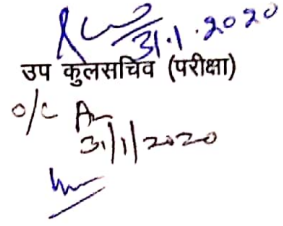 31.1.2020
उप कुलसचिव (परीक्षा)
O/C
31/1/2020